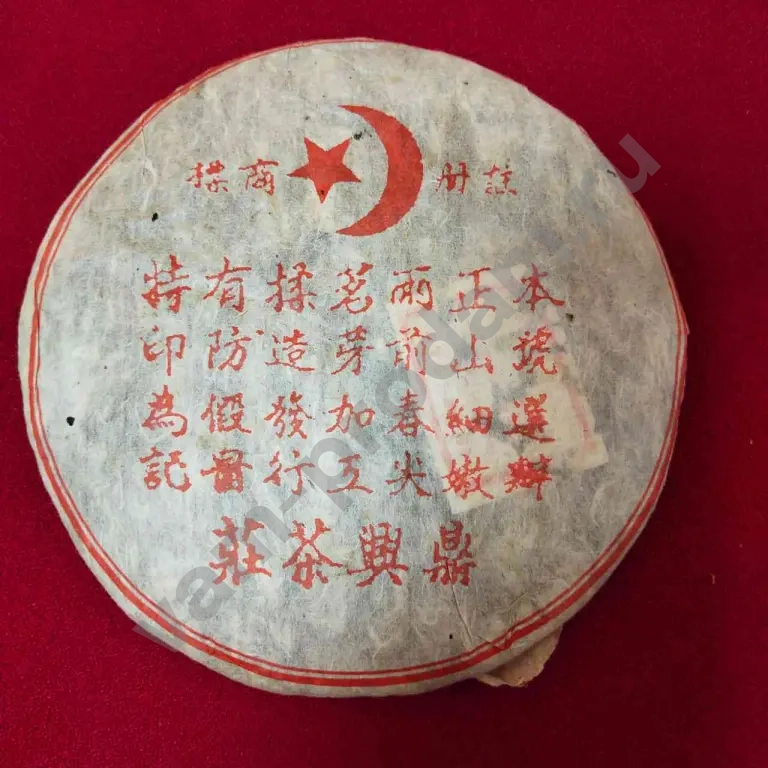 註册商標
本號選辦
正山細嫩
雨前春尖
茗芽加工
揉造發行
有防假冒
特印為記
鼎興茶莊
vam-prodam.ru